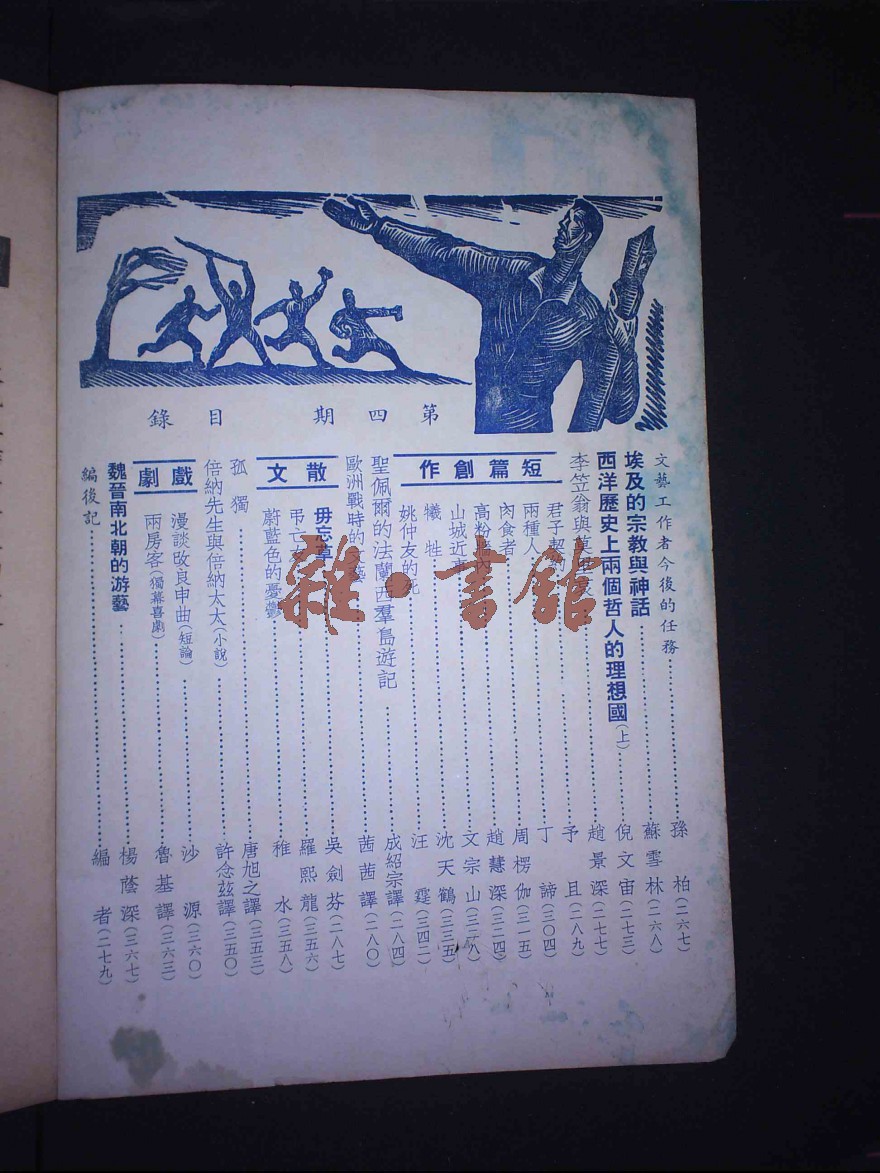 第四期目錄
文藝工作者今後的任務 孫柏(二六七)
埃及的宗教與神話 蘇雪林(二六八)
西洋歷史上兩個哲人的理想國(上) 倪文宙(二七三)
李笠翁與 趙景深(二七七)
短篇創作
君子契約 予且(二八九)
兩種人 丁諦(三〇四)
肉食者 周楞伽(三一五)
高粱 內 趙慧深(三二四)
山城近事 文宗山(三二八)
犧牲 沈天鶴(三三五)
姚仲友的死 汪霆(三四二)
聖佩爾的法蘭西羣島遊記 成紹宗譯(二八四)
歐洲戰時的文藝 茜茜譯(二八〇)
散文
毋忘草 吳劍芬(二八七)
弔亡 羅熙龍(三五六)
蔚藍色的憂鬱 稚水(三五八)
孤獨 唐旭之譯(三五三)
倍納先生與倍納太太(小說) 許念茲譯(三五〇)
戲劇
漫談改良申曲(短論) 沙源(三六〇)
兩房客(獨幕喜劇) 魯基譯(三六三)
魏晉南北朝的游藝 楊蔭深(三六七)
編後記 編者(二七九)
雜·書館